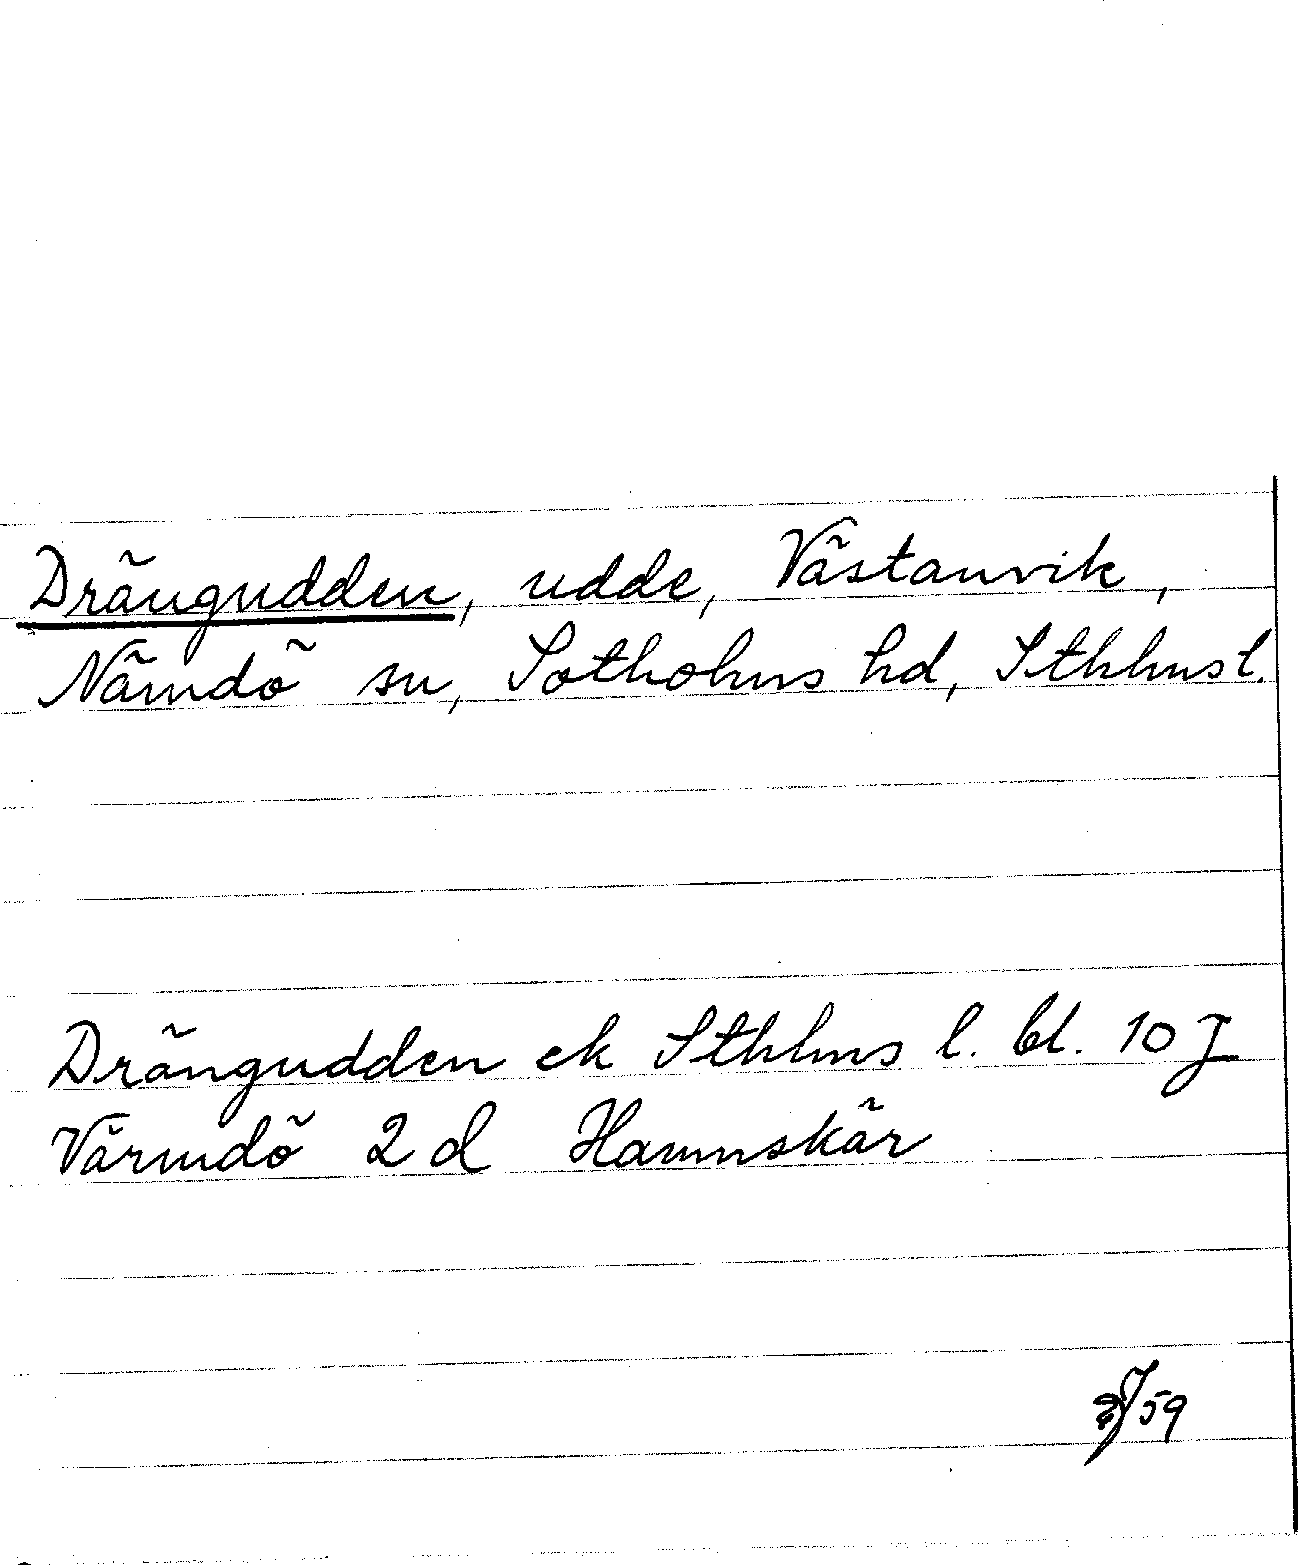 Drängudden, udde, Västanvik,
Nämdö sn, Sotholms hd, Sthlms l.
Drängudden ek Sthlms l. bl. 10 J
Värmdö 2 d Hamnskär
59